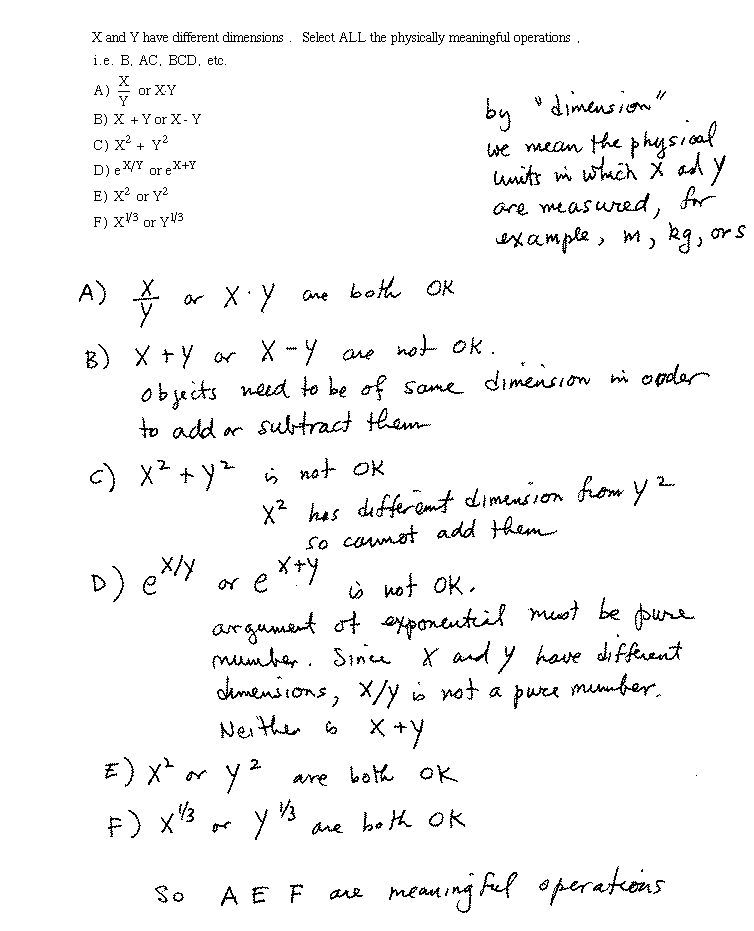 X and Y have different dimensions . Select ALL the physically meaningful operations ,
i.e. B, AC, BCD, etc.
A) X/Y or X·Y
B) X + Y or X - Y
C) X² + Y²
D) e^X/Y or e^X+Y
E) X² or Y²
F) X^1/3 or Y^1/3
by "dimension"
we mean the physical
units in which X ad Y
are measured, for
example, m, kg, or s
A) X/Y or X·Y are both OK
B) X + Y or X - Y are not OK.
objects need to be of same dimension in order
to add or subtract them
C) X² + Y² is not OK
X² has different dimension from Y²
so cannot add them
D) e^X/Y or e^X+Y is not OK.
argument of exponential must be pure
number. Since X and Y have different
dimensions, X/Y is not a pure number.
Neither is X + Y
E) X² or Y² are both OK
F) X^1/3 or Y^1/3 are both OK
So A E F are meaningful operations